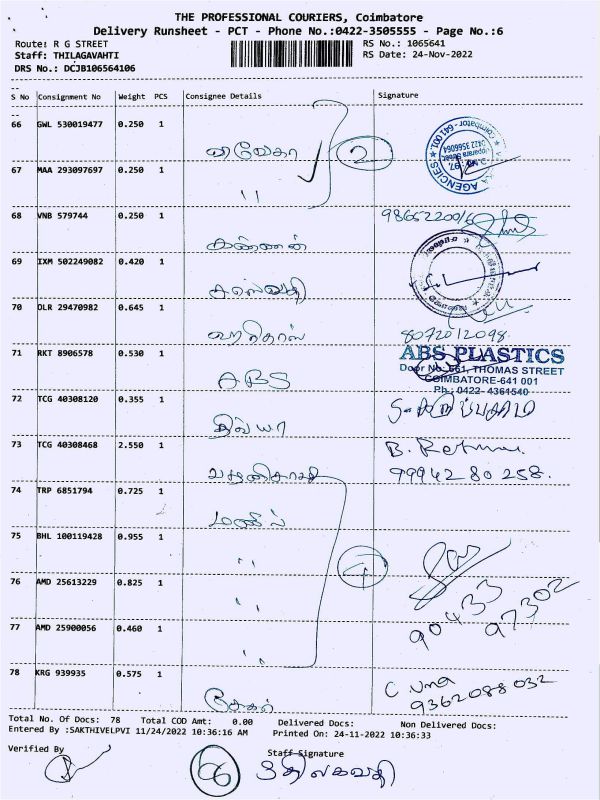 THE PROFESSIONAL COURIERS, Coimbatore
Delivery Runsheet - PCT - Phone No.:0422-3505555 - Page No.:6
Route: R G STREET
RS No.: 1065641
Staff: THILAGAVAHTI
RS Date: 24-Nov-2022
DRS No.: DCJB106564106
S No Consignment No Weight PCS Consignee Details Signature
66 GWL 530019477 0.250 1
2
67 MAA 293097697 0.250 1 "
AGENCIES
68 VNB 579744 0.250 1 கண்ணன்
69 IXM 502249082 0.420 1
70 DLR 29470982 0.645 1 ஹரிதாஸ் 8072012098
71 RKT 8906578 0.530 1 ABS
ABS PLASTICS
Door No: 661, THOMAS STREET
COIMBATORE-641 001
Ph : 0422- 4361540
72 TCG 40308120 0.355 1 திவ்யா
73 TCG 40308468 2.550 1 B. 99942 80 258.
74 TRP 6851794 0.725 1
75 BHL 100119428 0.955 1 "
76 AMD 25613229 0.825 1 "
90433 97302
77 AMD 25900056 0.460 1 "
78 KRG 939935 0.575 1 சேகர் C Uma 9362088032
Total No. Of Docs: 78 Total COD Amt: 0.00 Delivered Docs: Non Delivered Docs:
Entered By :SAKTHIVELPVI 11/24/2022 10:36:16 AM Printed On: 24-11-2022 10:36:33
Verified By
Staff Signature
66 திலகவதி